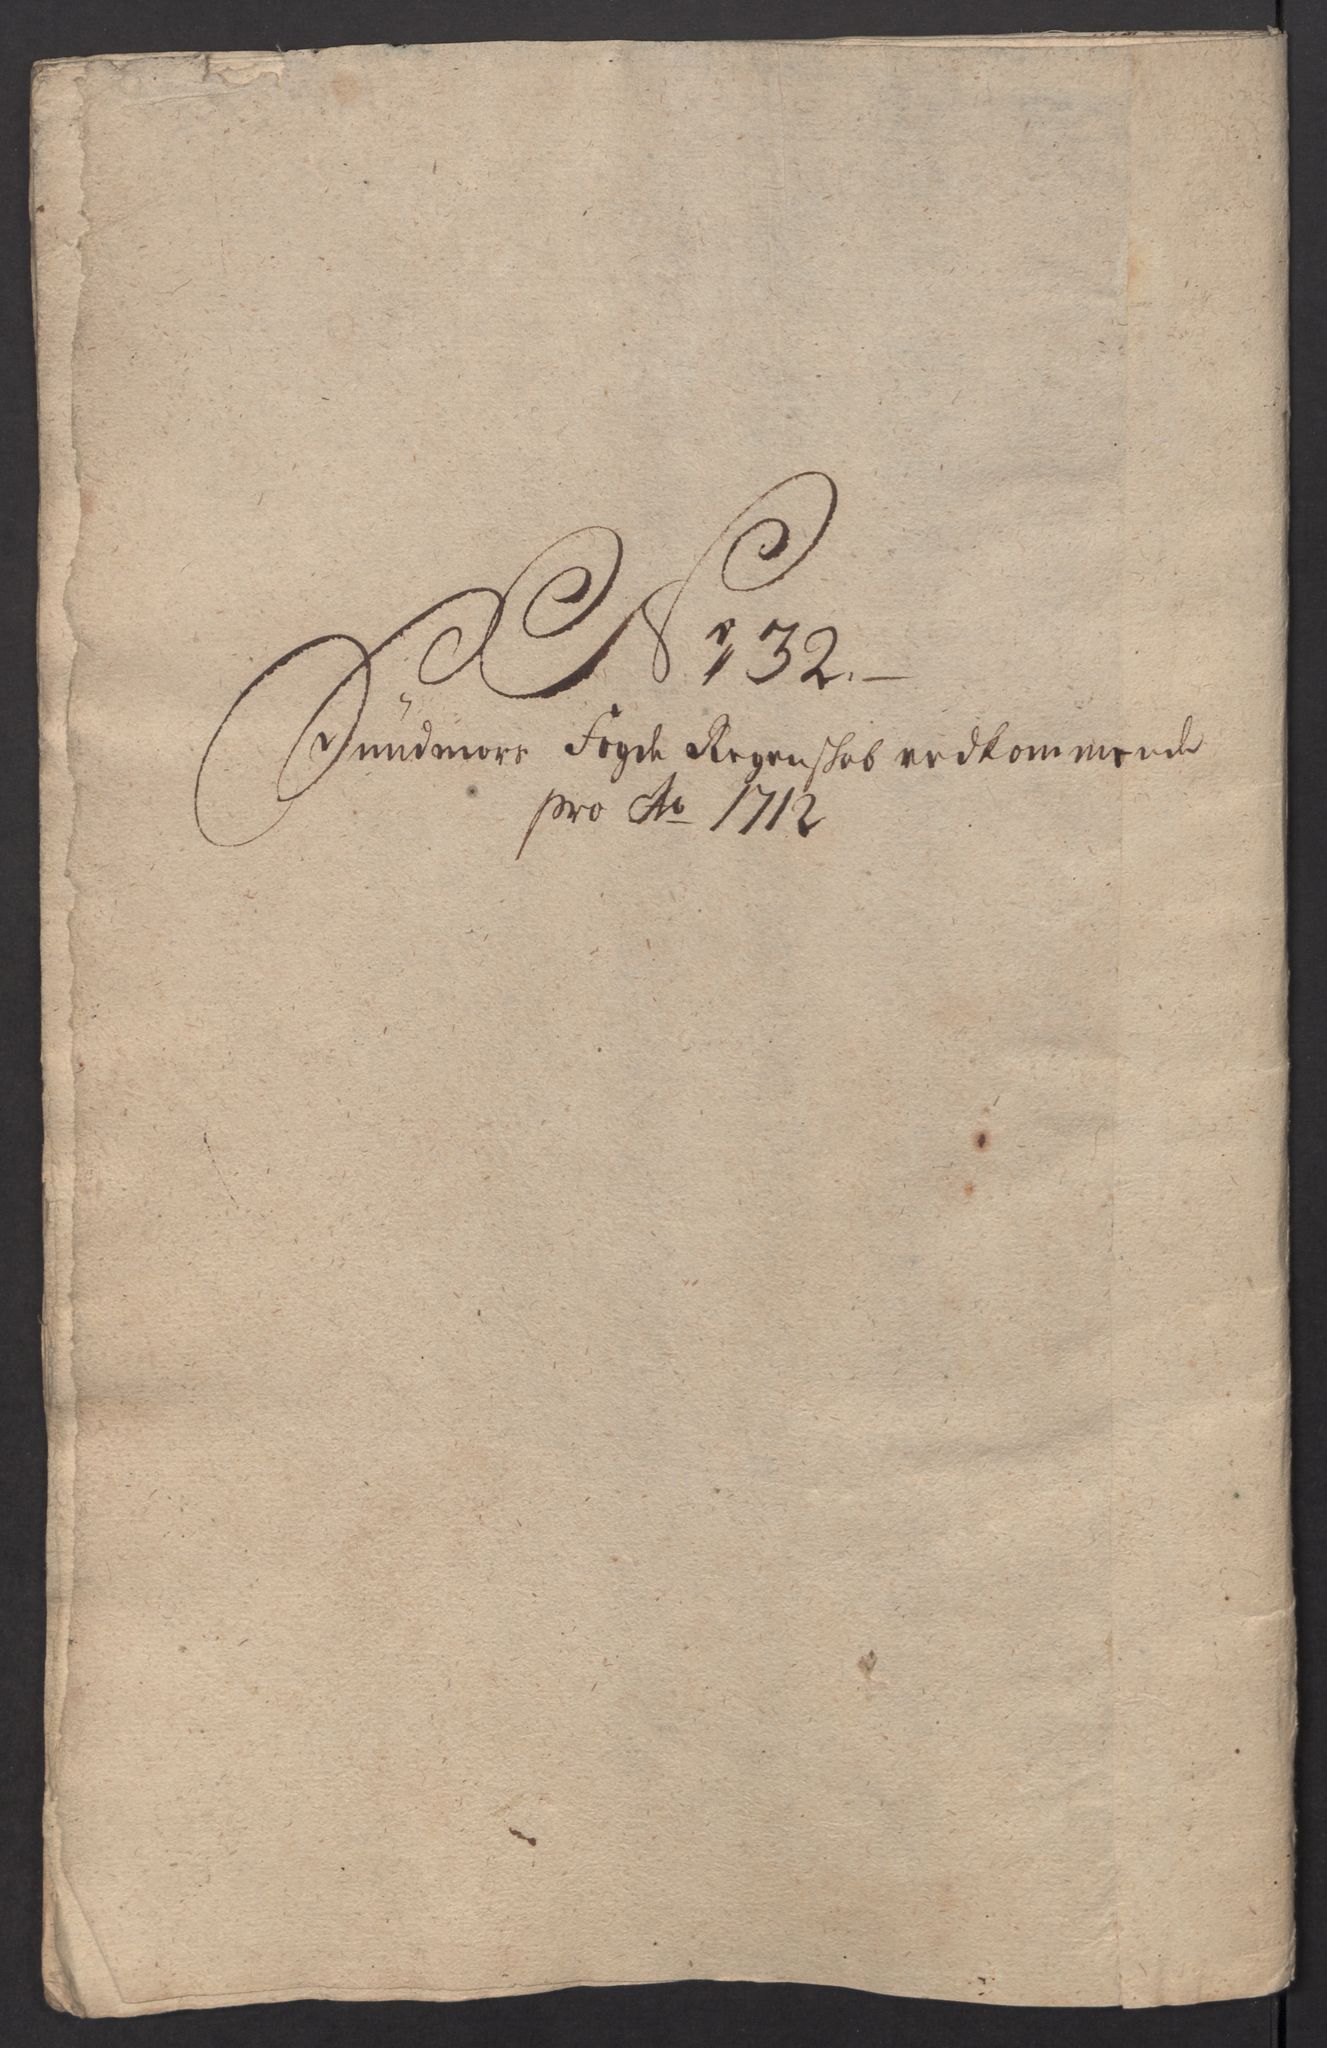 No 32.
Sündmors Fogde Regenskab vedkommende
pro Ao 1712